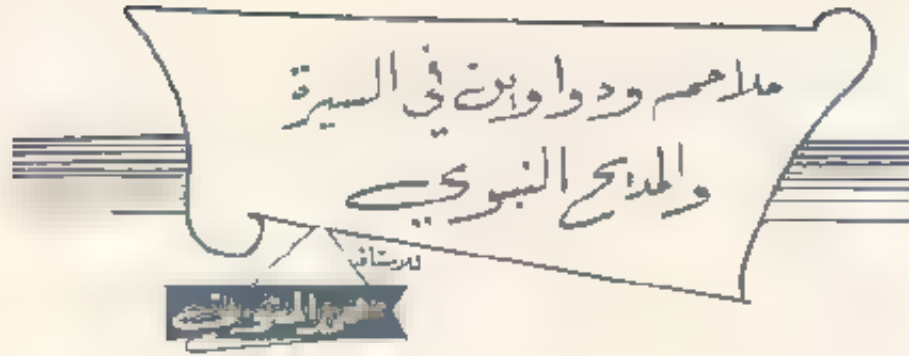 ملاحم ودواوين في السيرة
والمديح النبوي
للأستاذ